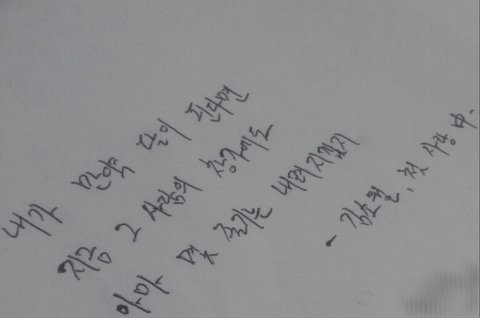 내가 만약 달이 된다면
지금 그 사람의 창가에도
아마 몇 줄기는 내려지겠지
- 김소월, 첫 사랑 中.